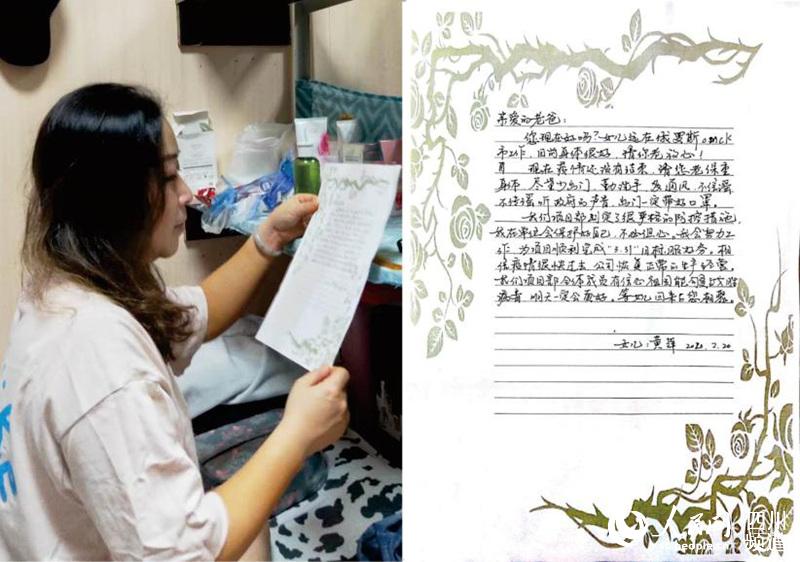 亲爱的老爸：
您现在好吗？女儿远在俄罗斯omck
市工作，目前身体很好，请您老放心！
现在疫情还没有结束，请您老保重
身体，尽量少出门，勤洗手，多通风，不信谣
不传谣听政府的声音，出门一定带好口罩。
我们项目部制定了很严格的防控措施，
我在单位会保护好自己，不必担心。我会努力工
作，为项目顺利完成“3.31”目标服好务。相
信疫情很快过去，公司恢复正常的生产经营。
我们项目部全体成员有信心祖国能够战胜
病毒，明天一定会更好，等女儿回来与您相聚。
女儿：黄萍 2020.2.20
人民网
people.cn
四川
频道